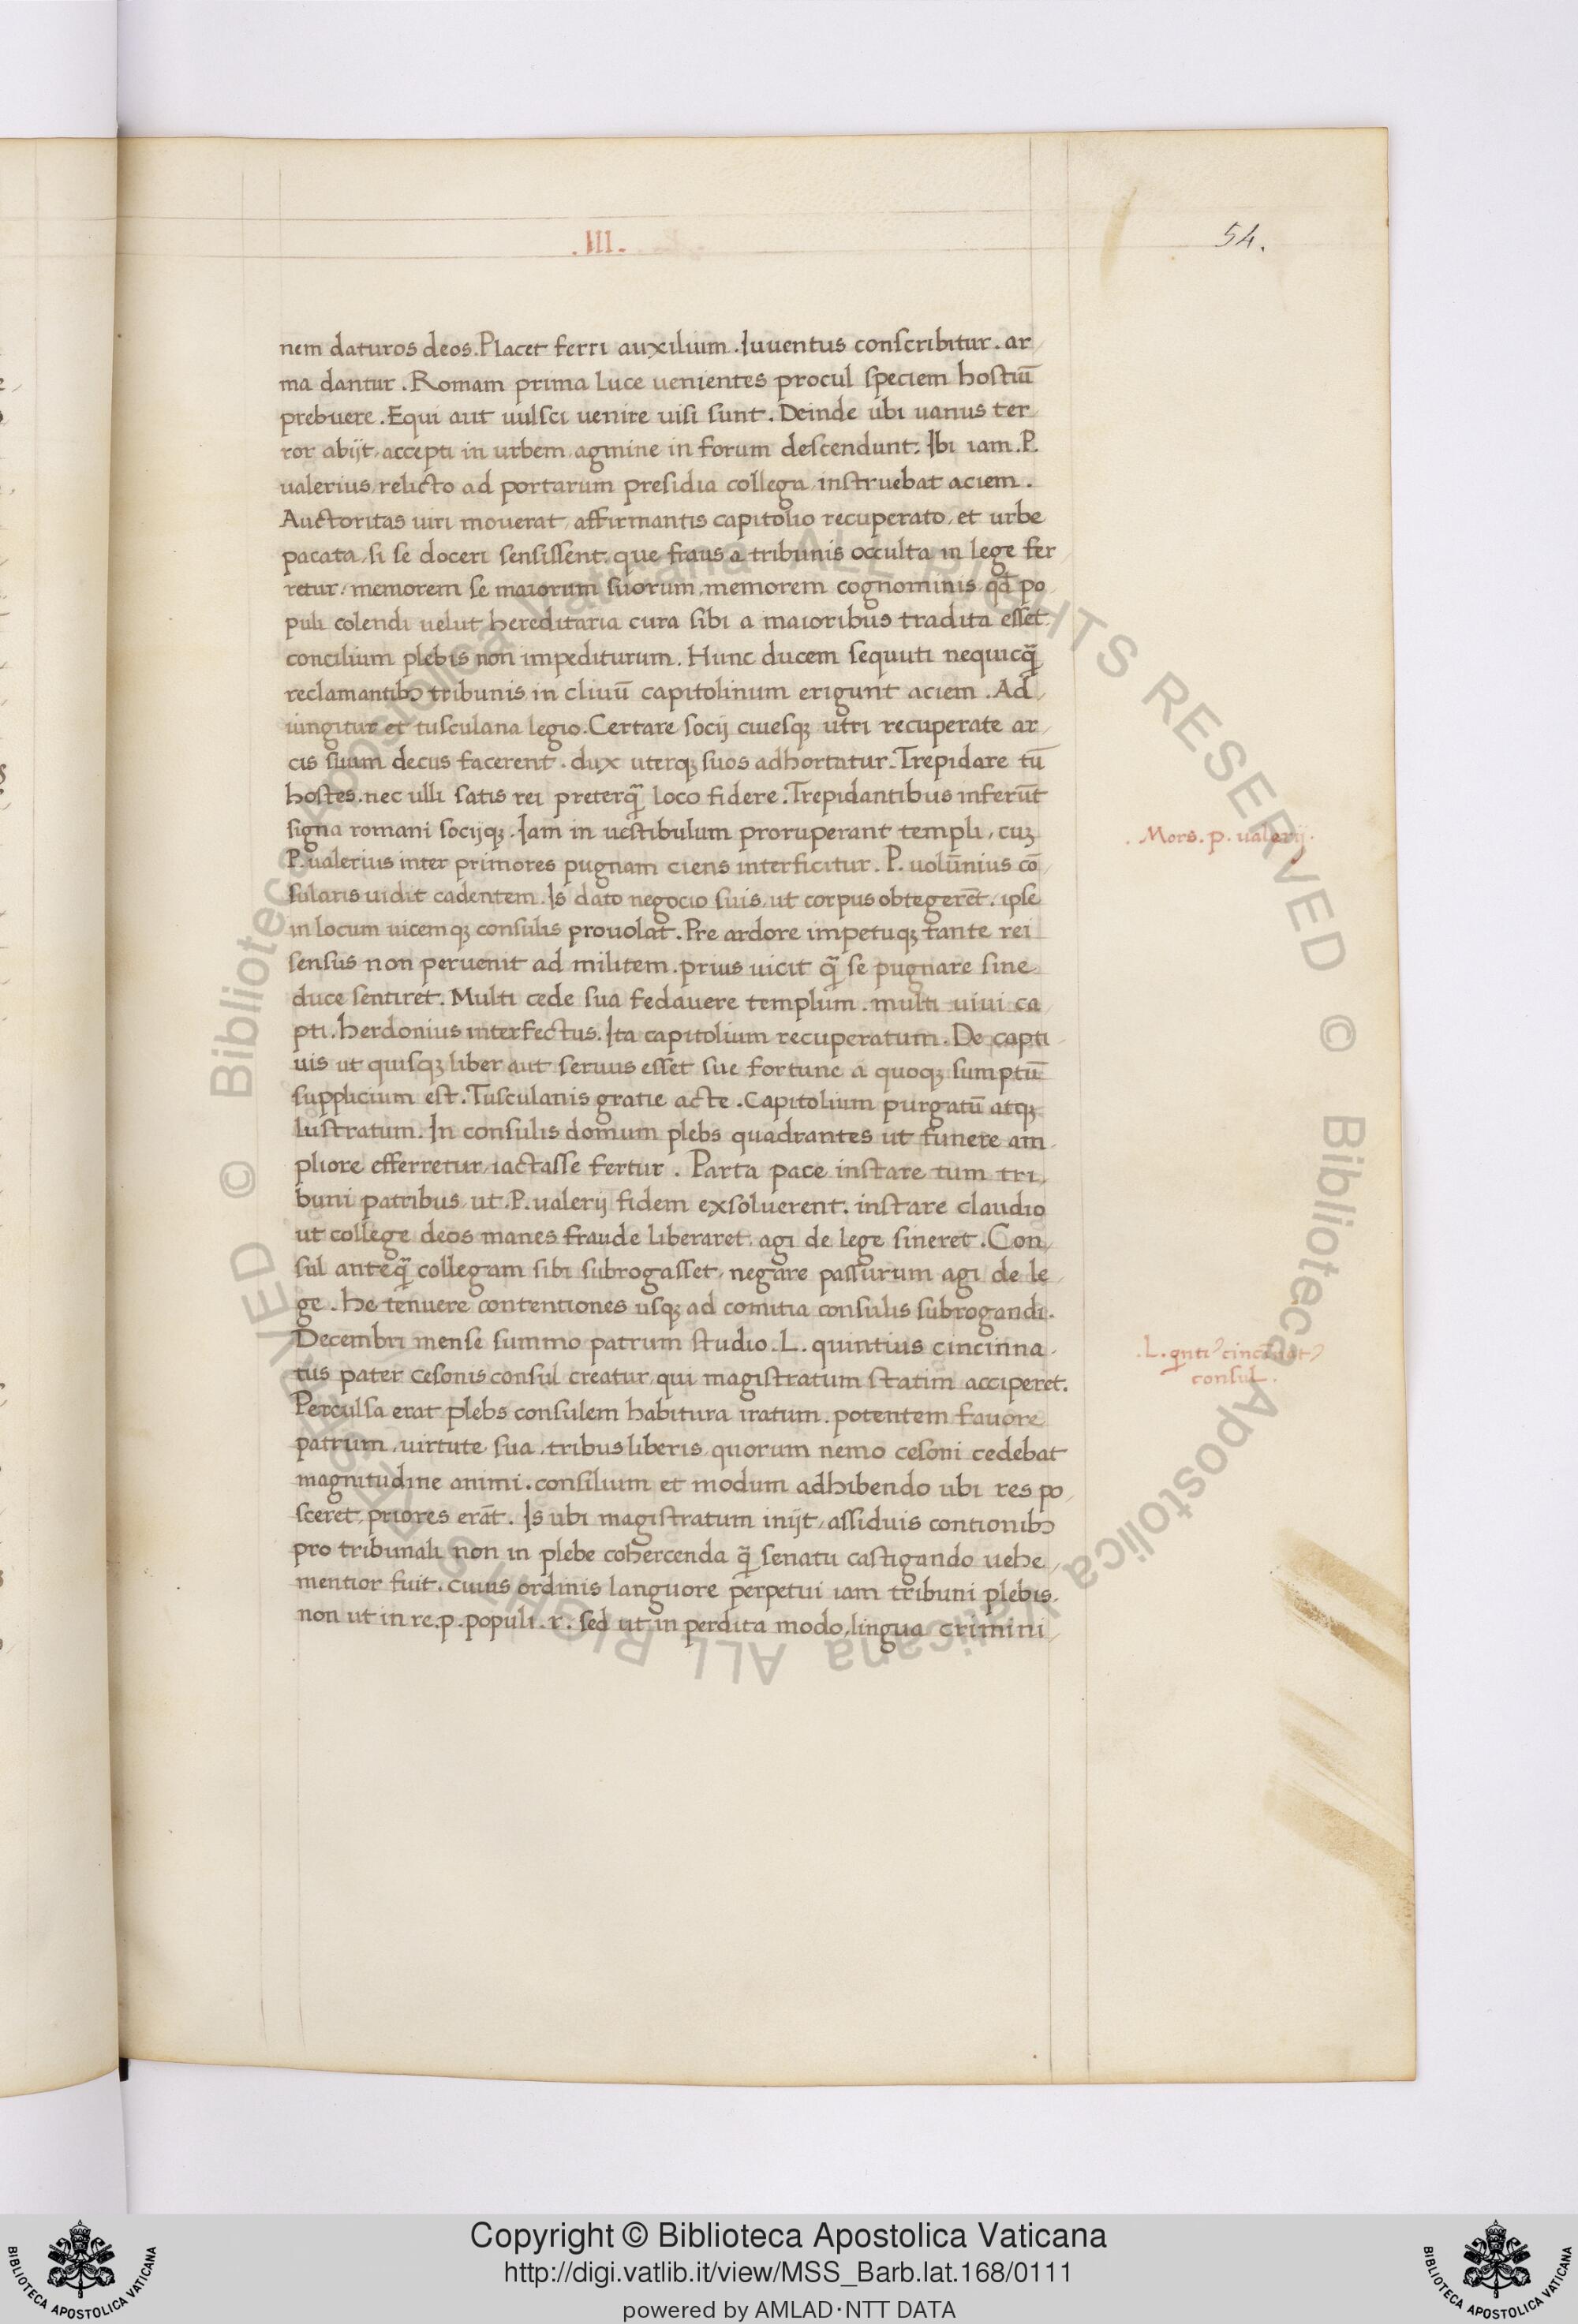 .III.
54.
nem daturos deos. Placet ferri auxilium. Iuuentus conscribitur. ar
ma dantur. Romam prima luce uenientes procul speciem hostiũ
prebuere. Equi aut uulsci uenire uisi sunt. Deinde ubi uanus ter
ror abijt, accepti in urbem, agmine in forum descendunt. Ibi iam .P.
ualerius, relicto ad portarum presidia collega, instruebat aciem.
Auctoritas uiri mouerat, affirmantis capitolio recuperato, et urbe
pacata, si se doceri sensissent, que fraus a tribunis occulta in lege fer
retur, memorem se maiorum suorum, memorem cognominis, qd̃ po
puli colendi uelut hereditaria cura sibi a maioribus tradita esset.
concilium plebis non impediturum. Hunc ducem sequuti nequicq̃
reclamantibꝯ tribunis, in cliuũ capitolinum erigunt aciem. Ad
iungitur et tusculana legio. Certare socij ciuesqꝫ utri recuperate ar
cis suum decus facerent. dux uterqꝫ suos adhortatur. Trepidare tũ
hostes. nec ulli satis rei preterq̃ loco fidere. Trepidantibus inferũt
signa romani socijqꝫ. Iam in uestibulum proruperant templi, cuꝫ
P. ualerius inter primores pugnam ciens interficitur. P. uolũnius cõ
sularis uidit cadentem. Is dato negocio suis, ut corpus obtegerẽt, ipse
in locum uicemqꝫ consulis prouolat. Pre ardore impetuqꝫ tante rei
sensus non peruenit ad militem. prius uicit q̃ se pugnare sine
duce sentiret. Multi cede sua fedauere templum. multi uiui ca
pti. herdonius interfectus. Ita capitolium recuperatum. De capti
uis ut quisqꝫ liber aut seruus esset sue fortune a quoqꝫ sumptũ
supplicium est. Tusculanis gratie acte. Capitolium purgatũ atqꝫ
lustratum. In consulis domum plebs quadrantes ut funere am
pliore efferretur, iactasse fertur. Parta pace instare tum tri
buni patribus, ut .P. ualerij fidem exsoluerent. instare claudio
ut college deos manes fraude liberaret, agi de lege sineret. Con
sul anteq̃ collegam sibi subrogasset, negare passurum agi de le
ge. he tenuere contentiones usqꝫ ad comitia consulis subrogandi.
Decembri mense summo patrum studio .L. quintius cincinna
tus pater cesonis consul creatur, qui magistratum statim acciperet.
Perculsa erat plebs consulem habitura iratum. potentem fauore
patrum, uirtute sua, tribus liberis, quorum nemo cesoni cedebat
magnitudine animi. consilium et modum adhibendo ubi res po
sceret, priores erãt. Is ubi magistratum inijt, assiduis contionibꝯ
pro tribunali non in plebe cohercenda q̃ senatu castigando uehe
mentior fuit. cuius ordinis languore perpetui iam tribuni plebis.
non ut in re.p. populi .r. sed ut in perdita modo, lingua crimini
. Mors. p. ualerij.
.L. qnti⁹ cincinat⁹
consul.
Copyright © Biblioteca Apostolica Vaticana
http://digi.vatlib.it/view/MSS_Barb.lat.168/0111
powered by AMLAD·NTT DATA
BIBLIOTECA APOSTOLICA VATICANA
BIBLIOTECA APOSTOLICA VATICANA
© Biblioteca Apostolica Vaticana ALL RIGHTS RESERVED © Biblioteca Apostolica Vaticana ALL RIGHTS RESERVED